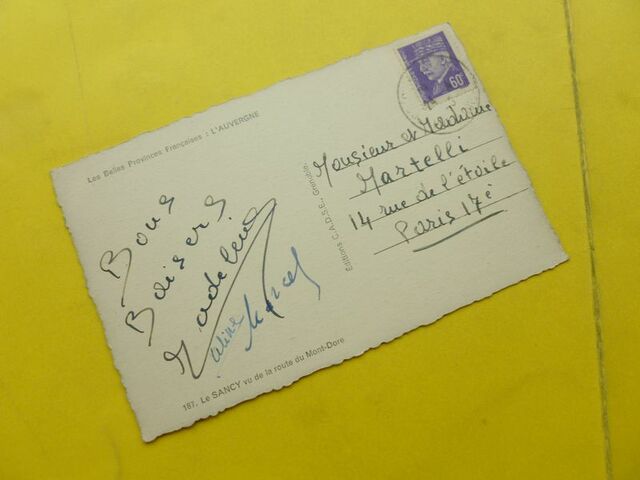 Les Belles Provinces Françaises : L'AUVERGNE
Bons
Baisers
Madeleine
Aline
Marcel
187. Le SANCY vu de la route du Mont-Dore
Editions C.A.D.S.E., Grenoble.
60c
Monsieur et Madame
Martelli
14 rue de l'étoile
Paris 17è